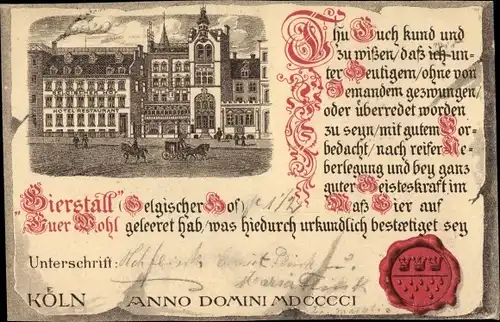 Thu Euch kund und
zu wißen/daß ich un-
ter Heutigem/ohne von
Jemandem gezwungen/
oder überredet worden
zu seyn/mit gutem Vor-
bedacht/nach reifer Ue-
berlegung und bey ganz
guter Geisteskraft im
"Bierstall" (Belgischer Hof) 1/2 Maß Bier auf
"Euer Wohl" geleeret hab/was hiedurch urkundlich bestætiget sey
Unterschrift:
Maria
KÖLN ANNO DOMINI MDCCCCI